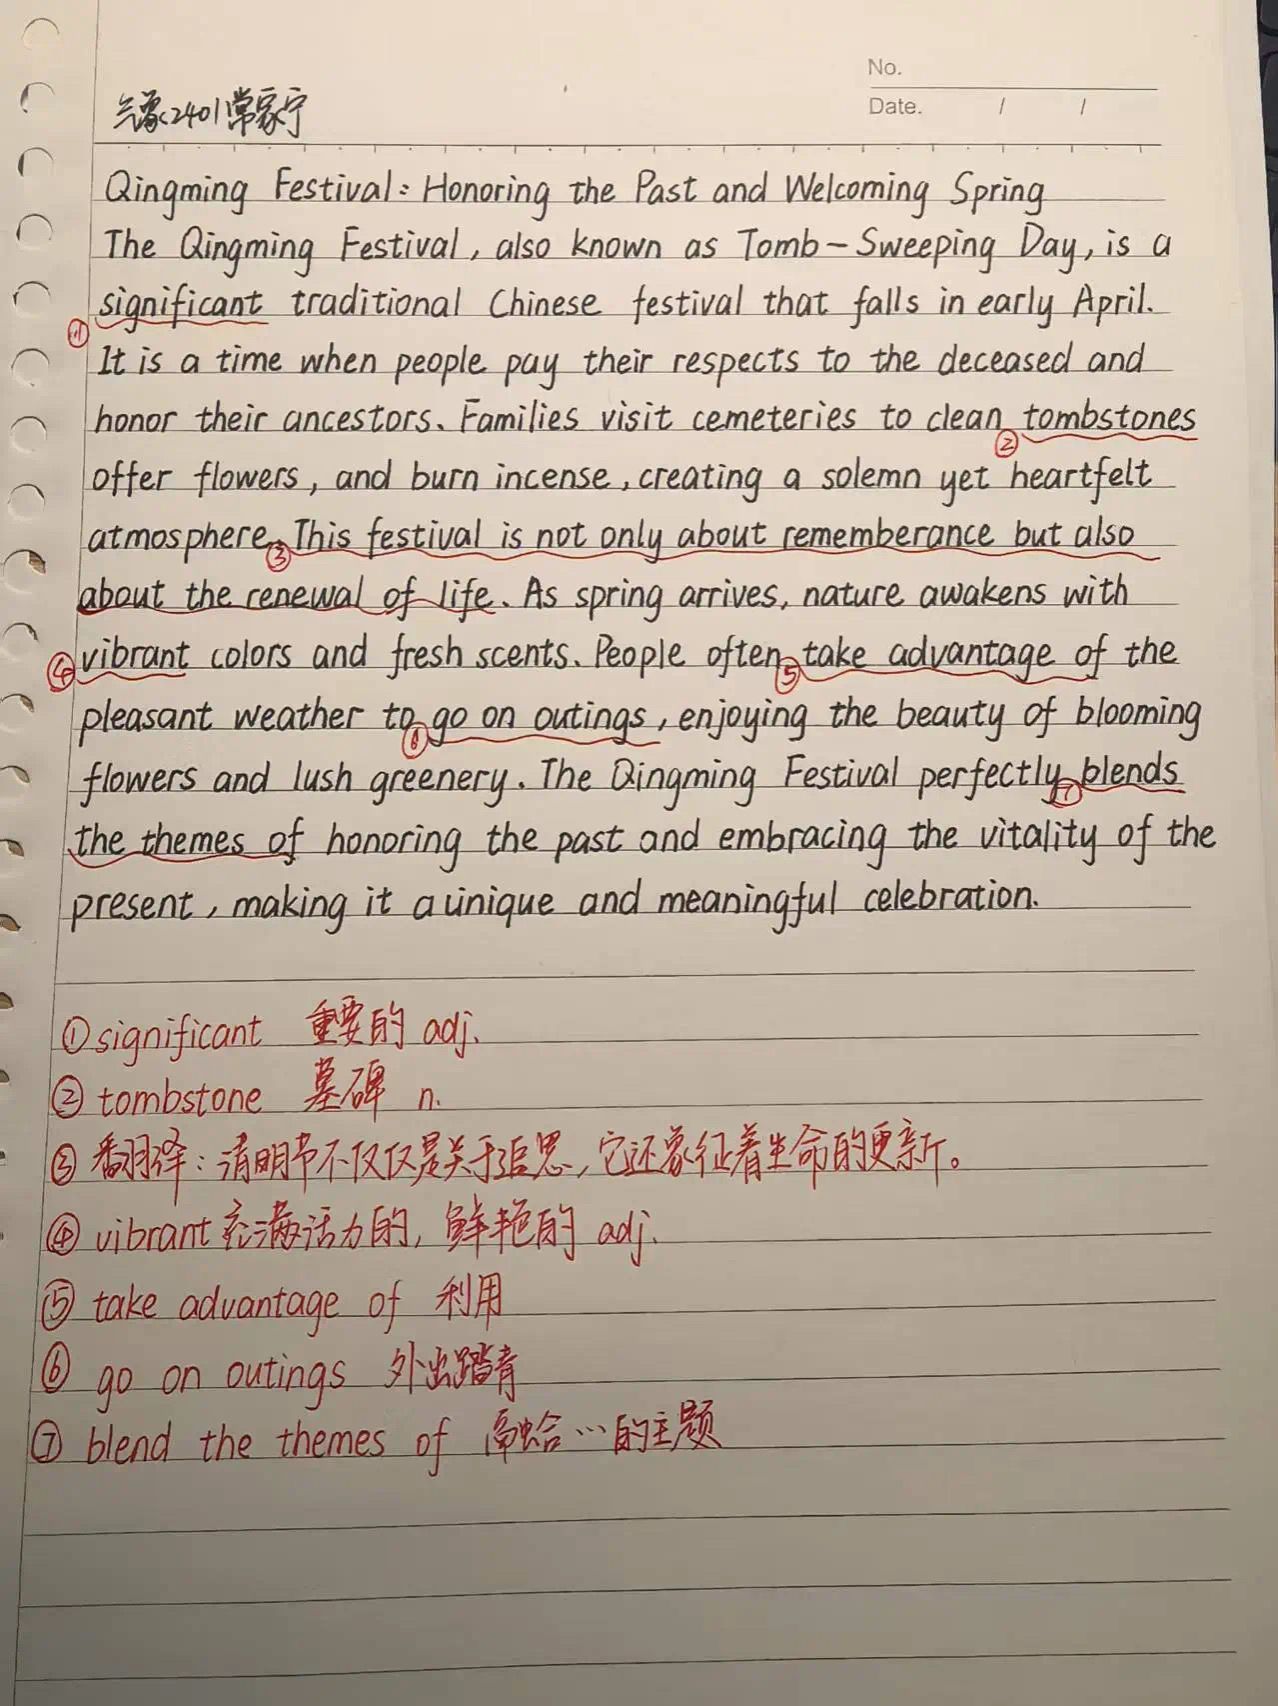 No.
Date. / /
气象2401常家宁
Qingming Festival: Honoring the Past and Welcoming Spring
The Qingming Festival, also known as Tomb-Sweeping Day, is a
① significant traditional Chinese festival that falls in early April.
It is a time when people pay their respects to the deceased and
honor their ancestors. Families visit cemeteries to clean ② tombstones
offer flowers, and burn incense, creating a solemn yet heartfelt
atmosphere. ③ This festival is not only about rememberance but also
about the renewal of life. As spring arrives, nature awakens with
④ vibrant colors and fresh scents. People often ⑤ take advantage of the
pleasant weather to ⑥ go on outings, enjoying the beauty of blooming
flowers and lush greenery. The Qingming Festival perfectly ⑦ blends
the themes of honoring the past and embracing the vitality of the
present, making it a unique and meaningful celebration.
① significant 重要的 adj.
② tombstone 墓碑 n.
③ 翻译: 清明节不仅仅是关于追思, 它还象征着生命的更新。
④ vibrant 充满活力的, 鲜艳的 adj.
⑤ take advantage of 利用
⑥ go on outings 外出踏青
⑦ blend the themes of 融合…的主题